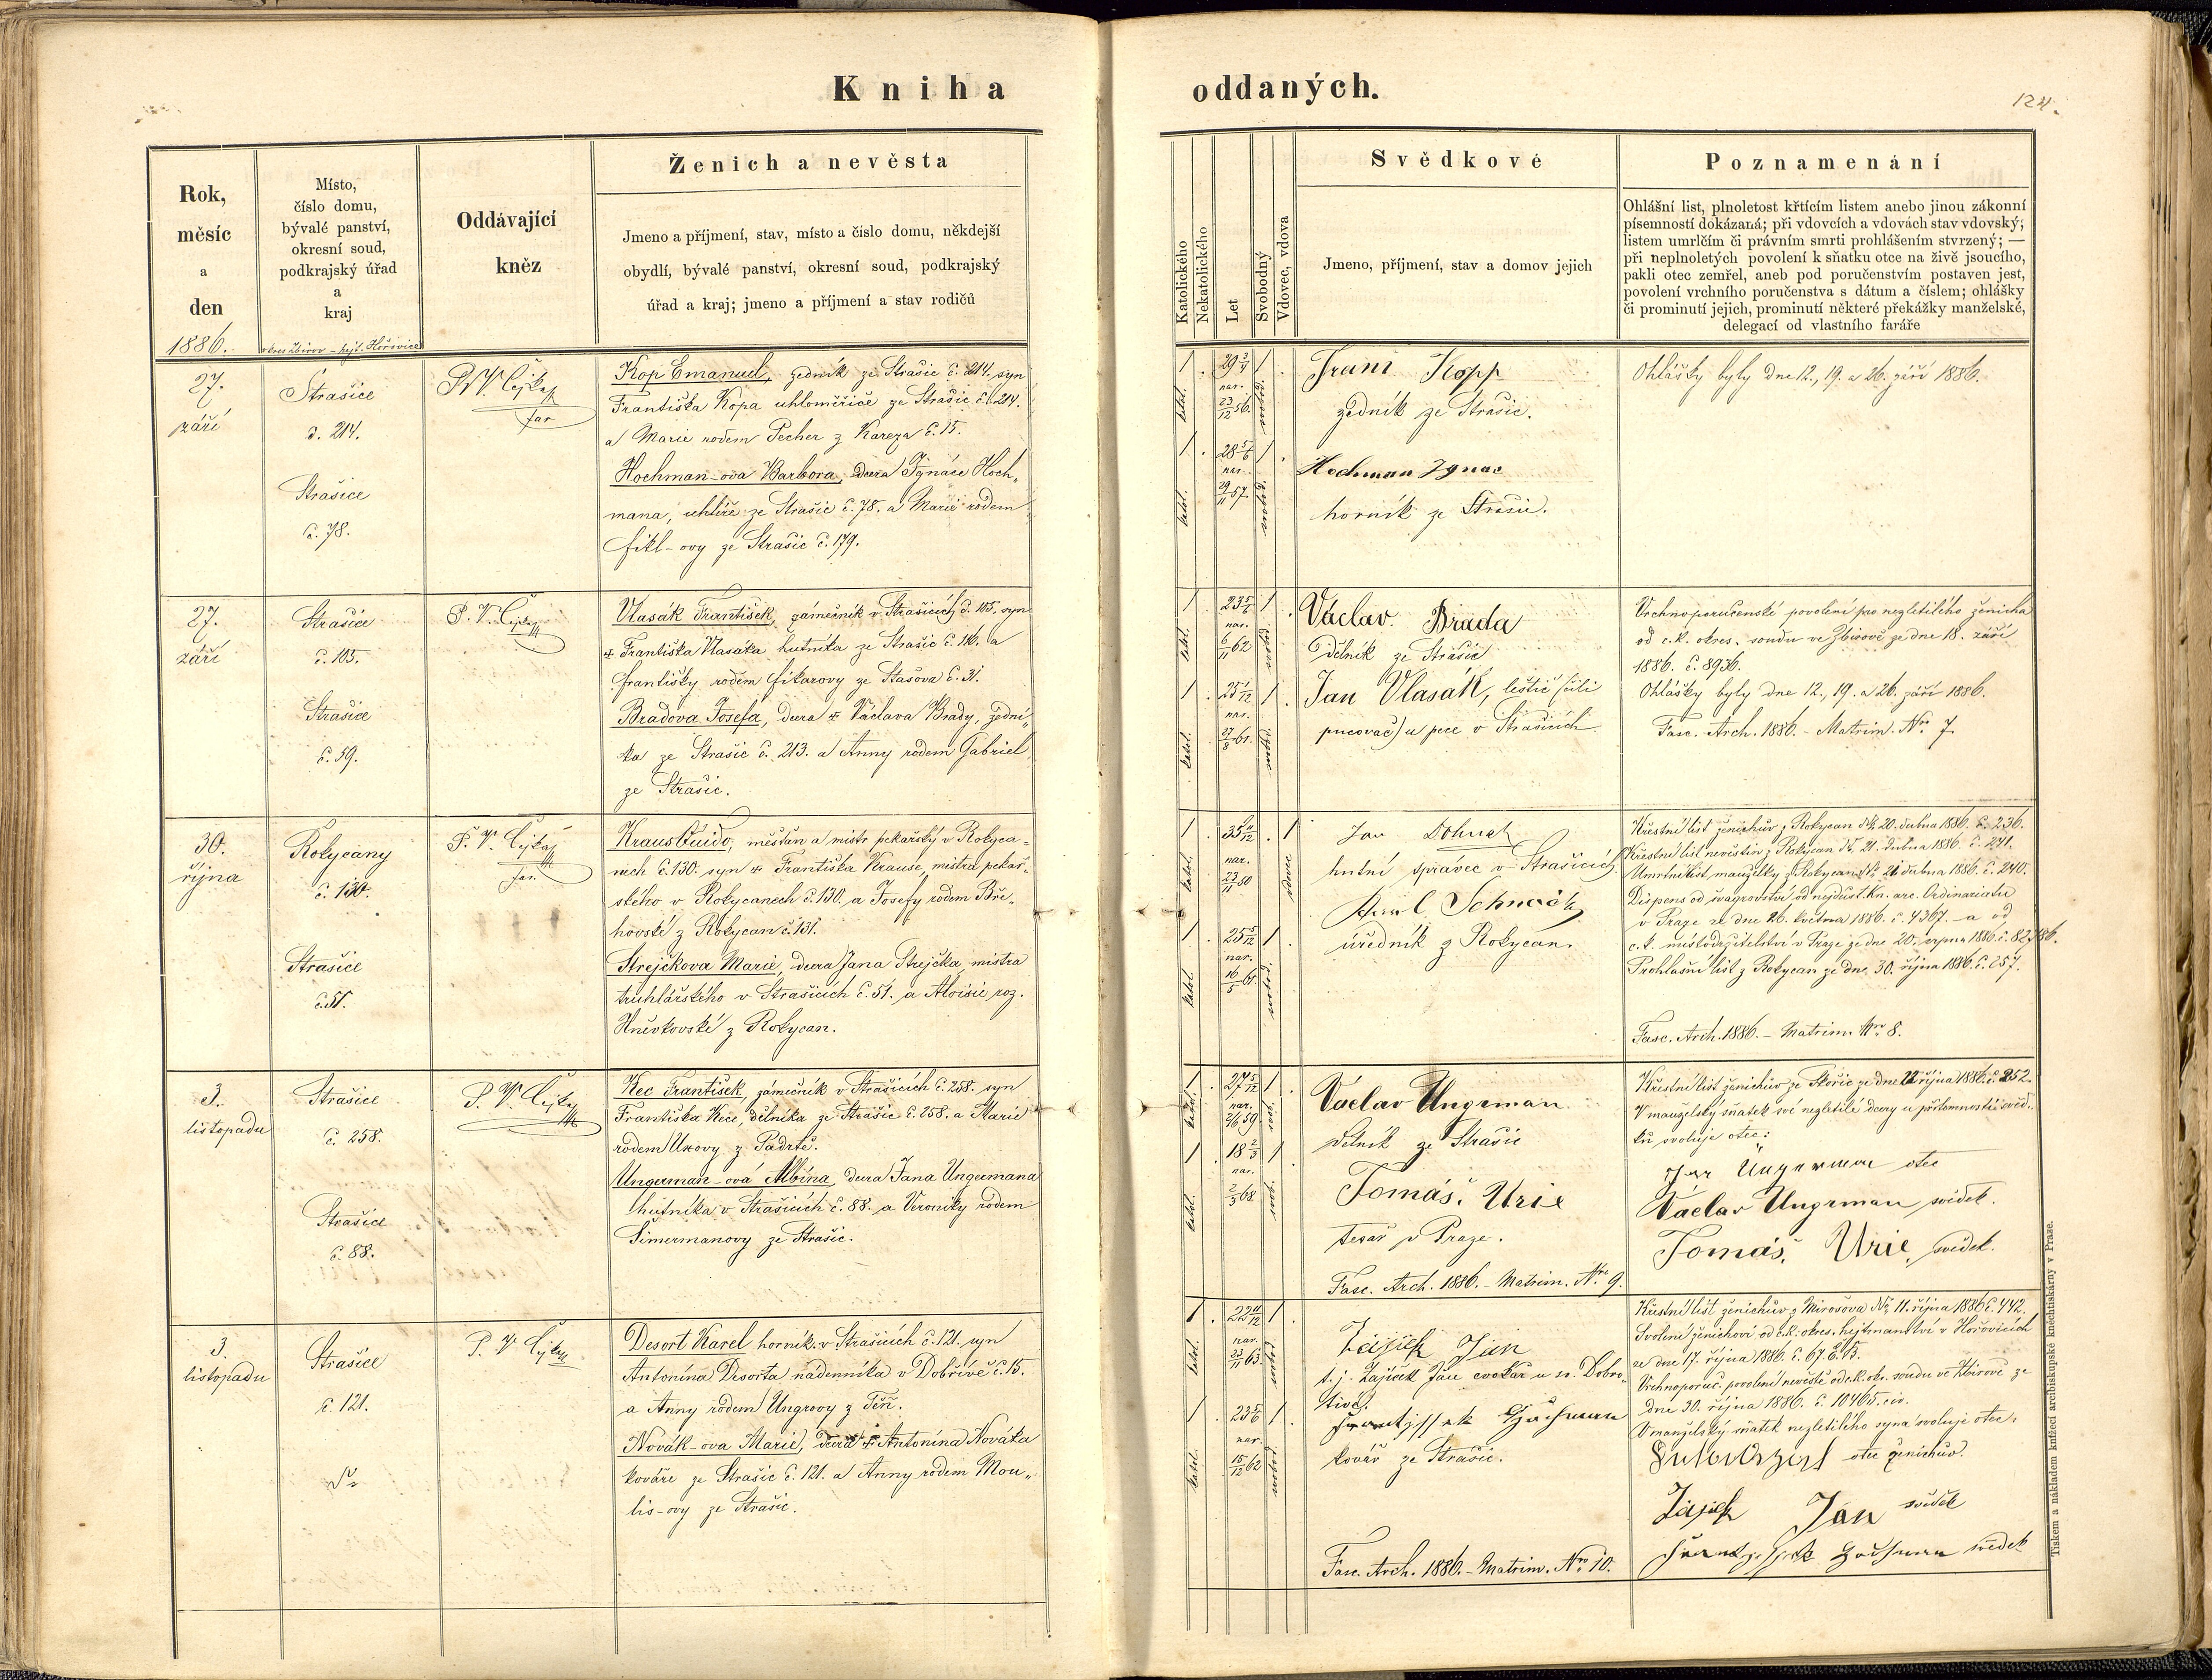 Kniha
oddaných.
124.
Rok,
měsíc
a
den
1886.
Místo,
číslo domu,
bývalé panství,
okresní soud,
podkrajský úřad
a
kraj
okres Zbirov – hejt. Hořovice
Oddávající
kněz
Ženich a nevěsta
Jmeno a příjmení, stav, místo a číslo domu, někdejší
obydlí, bývalé panství, okresní soud, podkrajský
úřad a kraj; jmeno a příjmení a stav rodičů
Katolického
Nekatolického
Let
Svobodný
Vdovec, vdova
Svědkové
Jmeno, příjmení, stav a domov jejich
Poznamenání
Ohlášní list, plnoletost křtícím listem anebo jinou zákonní
písemností dokázaná; při vdovcích a vdovách stav vdovský;
listem umrlčím či právním smrti prohlášením stvrzený; —
při neplnoletých povolení k sňatku otce na živě jsoucího,
pakli otec zemřel, aneb pod poručenstvím postaven jest,
povolení vrchního poručenstva s dátum a číslem; ohlášky
či prominutí jejich, prominutí některé překážky manželské,
delegací od vlastního faráře
27.
září
Strašice
č. 214.
Strašice
č. 78.
far
Kop Emanuel, zedník ze Strašic č. 214. syn
Františka Kopa uhloměřiče ze Strašic č. 214.
a Marie rodem Pecher z Kareza č. 15.
Hochman-ova Barbora, dcera Ignáce Hoch-
mana, uhlíře ze Strašic č. 78. a Marie rodem
Fikl-ovy ze Strašic č. 179.
1 . 29 1 .
nar.
23/12 56.
katol.
svobod.
1 . 28 5/6 1 .
nar.
29/11 57.
katol.
svobod.
Kopp
zedník ze Strašic.
Hochman Ignac
horník ze Strašic.
Ohlášky byly dne 12., 19. a 26. září 1886.
27.
září
Strašice
č. 105.
Strašice
č. 59.
P. V.
Vlasák František, zámečník v Strašicích č. 105, syn
Františka Vlasáka hutníka ze Strašic č. 116. a
Františky rodem Fikarovy ze Stašova č. 31.
Bradova Josefa, dcera Václava Brady, zední-
ka ze Strašic č. 213. a Anny rodem Gabriel
ze Strašic.
1 . 23 1 .
nar.
6/11 62
katol.
svobod.
1 . 25 1/12 1 .
nar.
27/8 61.
katol.
svobod.
Václav Brada
Dělník ze Strašic
Jan Vlasák, leštič (čili
pucovač) u pece v Strašicích
Vrchnoporučenské povolení pro nezletilého ženicha
od c. k. okres. soudu ve Zbirově ze dne 18. září
1886. č. 8936.
Ohlášky byly dne 12., 19. a 26. září 1886.
Fasc. Arch. 1886. – Matrim. Nro 7.
30.
října
Rokycany
č. 130.
Strašice
č. 51.
P. V.
far.
Kraus Quido, měšťan a mistr pekařský v Rokyca-
nech č. 130. syn Františka Krause, mistra pekař-
ského v Rokycanech č. 130. a Josefy rodem Bře-
hovské z Rokycan č. 131.
Strejčkova Marie, dcera Jana Strejčka mistra
truhlářského v Strašicích č. 51. a Aloisie roz.
Hněvkovské z Rokycan.
1 . 35 11/12 . 1
nar.
23/11 50
katol.
vdovec
1 . 25 5/12 1 .
nar.
16/5 61.
katol.
svobod.
Jan Dohnal
hutní správce v Strašicích
Karel
úředník z Rokycan.
Křestní list ženichův z Rokycan dto. 20. dubna 1886. č. 236.
Křestní list nevěstin z Rokycan dto. 21. dubna 1886. č. 241.
Umrtní list manželky z Rokycan dto. 21 dubna 1886. č. 240.
Dispens od švagrovství od nejdůst. kn. arc. Ordinariatu
v Praze ze dne 26. května 1886. č. 4367. a od
c. k. místodržitelství v Praze ze dne 20. srpna 1886. č. 82,786.
Prohlašní list z Rokycan ze dne 30. října 1886. č. 257.
Fasc. Arch. 1886. – Matrim. Nro 8.
3.
listopadu
Strašice
č. 258.
Strašice
č. 88.
P. V.
Kec František, zámečník v Strašicích č. 258. syn
Františka Kece, dělníka ze Strašic č. 258. a Marie
rodem Uxovy z Padrtě.
Ungerman-ová Albína, dcera Jana Ungermana
hutníka v Strašicích č. 88. a Veroniky rodem
Šimermanovy ze Strašic.
1 . 27 5/12 1 .
nar.
59.
katol.
svob.
1 . 18 2/3 1 .
nar.
2/3 68.
katol.
svob.
Václav Ungrman
dělník ze Strašic
Tomáš Urie
tesař v Praze.
Fasc. Arch. 1886. – Matrim. Nro 9.
Křestní list ženichův ze Skořic ze dne 22 října 1886. č. 252.
V manželský sňatek své nezletilé dcery u přítomnosti svěd-
ků svoluje otec:
Jan Ungerman otec
Václav Ungrman svědek.
Tomáš Urie, svědek.
3.
listopadu
Strašice
č. 121.
P. V.
Desort Karel horník v Strašicích č. 121. syn
Antonína Desorta nádenníka v Dobřívě č. 15.
a Anny rodem Ungrovy z Těň.
Novák-ova Marie, dcera Antonína Nováka
kováře ze Strašic č. 121. a Anny rodem Mou-
lis-ovy ze Strašic.
1 . 22 11/12 1 .
nar.
23/11 63.
katol.
svobod.
1 . 23 5/6 1 .
nar.
15/12 62
katol.
svobod.
Zajíček Jan
t. j. Zajíček Jan cvokař u sv. Dobro-
tivé.
kovář ze Strašic.
Fasc. Arch. 1886. – Matrim. Nro 10.
Křestní list ženichův z Mirošova dto 11. října 1886 č. 442.
Svolení ženichovi od c. k. okres. hejtmanství v Hořovicích
ze dne 17. října 1886. č. 67.
Vrchnoporuč. povolení nevěstě od c. k. okr. soudu ve Zbirově ze
dne 30. října 1886. č. 10465. civ.
V manželský sňatek nezletilého syna svoluje otec:
otec ženichův.
Zajíček Jan svědek
svědek
Tiskem a nákladem knížecí arcibiskupské kněhtiskárny v Praze.